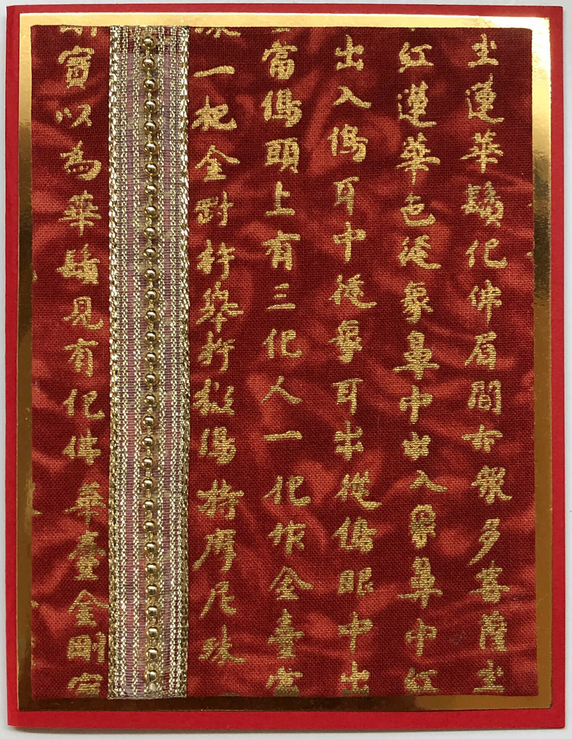 蓮華鬚化佛眉間亦眾多菩薩
紅蓮華色從象鼻中出入象鼻中紅
出入像耳中從象耳出從像眼中出
當像頭上有三化人一化作金臺當
一把金對杵舉杵擬像持摩尼珠
寶以為華鬚見有化佛華臺金剛